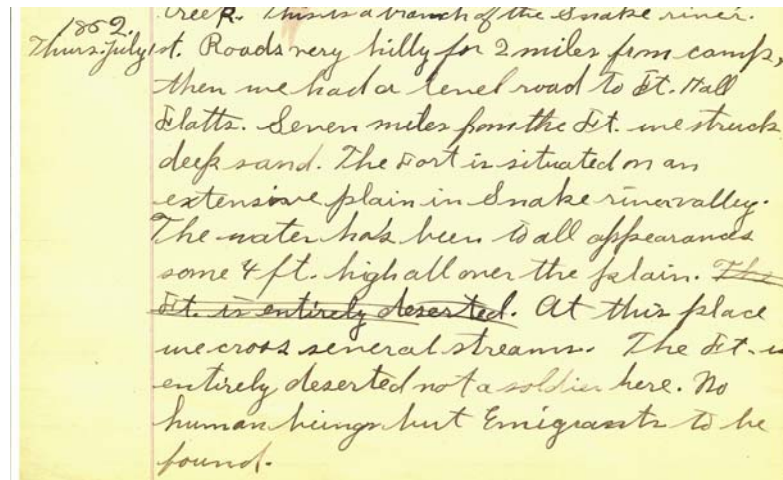 creek. This is a branch of the Snake river.
1852.
Thurs. July 1st. Roads very hilly for 2 miles from camp,
then we had a level road to Ft. Hall
Flatts. Seven miles from the Ft. we struck
deep sand. The Fort is situated on an
extensive plain in Snake river valley.
The water has been to all appearances
some 4 ft. high all over the plain. The
Ft. is entirely deserted. At this place
we cross several streams. The Ft. is
entirely deserted not a soldier here. No
human beings but Emigrants to be
found.